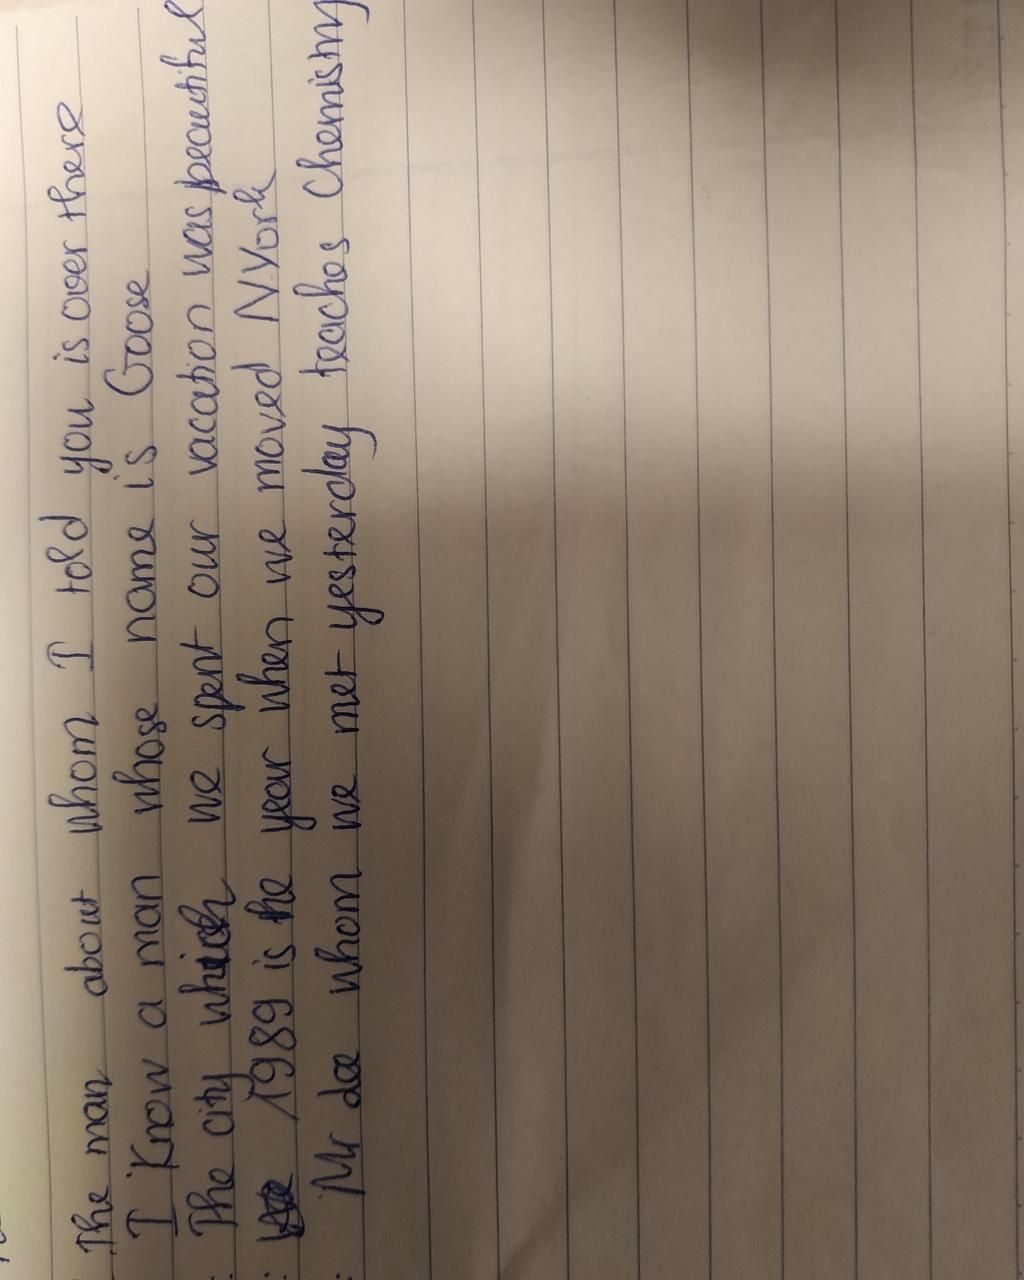 The man about whom I told you is over there
I know a man whose name is Goose
The city which we spent our vacation was beautiful
1989 is the year when we moved N.York
Mr doe whom we met yesterday teaches Chemistry